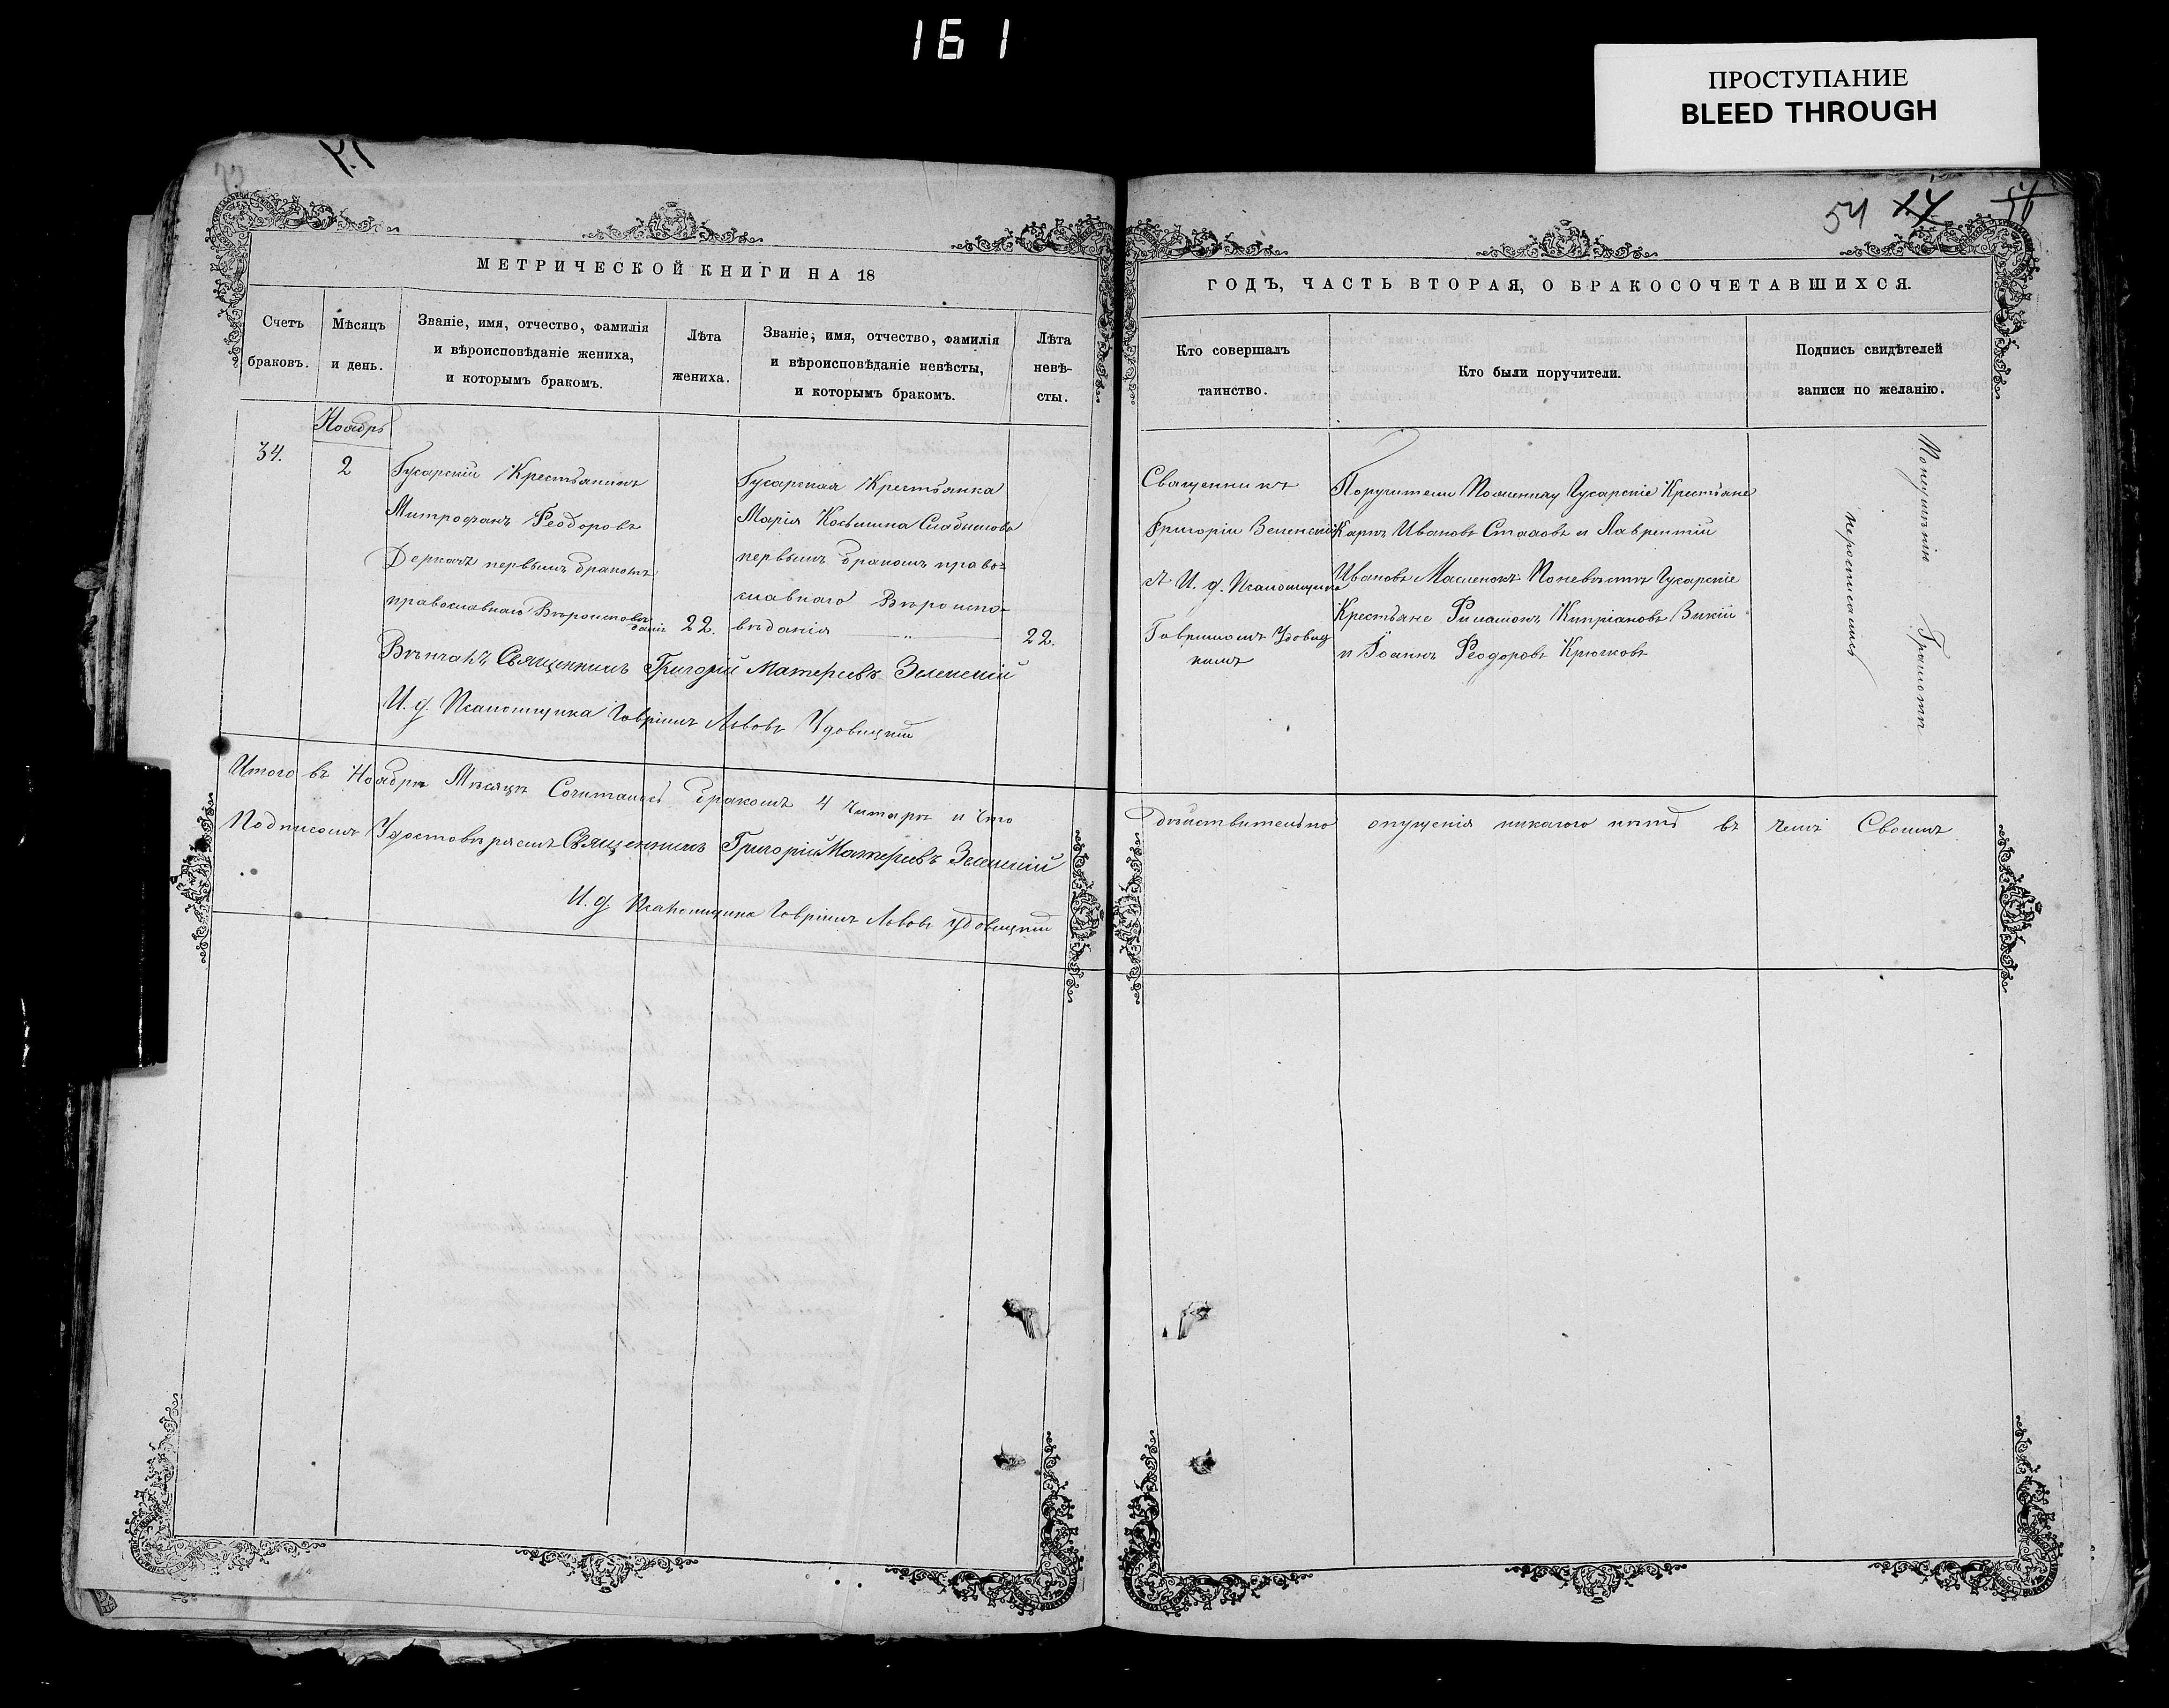 161
ПРОСТУПАНИЕ
BLEED THROUGH
54
МЕТРИЧЕСКОЙ КНИГИ НА 18
Счетъ браковъ.
Мѣсяцъ и день.
Званіе, имя, отчество, фамилія и вѣроисповѣданіе жениха, и которымъ бракомъ.
Лѣта жениха.
Званіе, имя, отчество, фамилія и вѣроисповѣданіе невѣсты, и которымъ бракомъ.
Лѣта невѣ-
сты.
Ноябрь
34.
2
Гусарскій Крестьянинъ
Митрофанъ Феодоровъ
Деркачъ первымъ бракомъ
православнаго Вѣроисповѣ
даніе
22.
Гусарская Крестьянка
Марія Косьмина
первымъ бракомъ право-
славнаго Вѣроиспо-
вѣданія
22.
Вѣнчалъ Священникъ Григорій Матѳеевъ Зеленскій
И. д. Псаломщика Гавріилъ Львовъ Удовицкій
Итого въ Ноябрѣ Мѣсяцѣ Сочиталось бракомъ 4 Читырѣ и Что
Подписомъ Удостовѣряемъ Священникъ Григорій Матѳеевъ Зеленскій
И. д. Псаломщика Гавріилъ Львовъ Удовицкій
ГОДЪ, ЧАСТЬ ВТОРАЯ, О БРАКОСОЧЕТАВШИХСЯ.
Кто совершалъ
таинство.
Кто были поручители.
Подпись свидѣтелей
записи по желанію.
Священникъ
Григорій Зеленскій
И. д. Псаломщика
Гавріиломъ Удовиц
кимъ
Поручители Пожениху Гусарскіе Крестьяне
Карпъ Ивановъ и Лаврентій
Ивановъ Масленокъ Поневѣстѣ Гусарскіе
Крестьяне Филимонъ Кипріановъ
и Іоаннъ Феодоровъ Крючковъ
Грамоты
неросписались
дѣйствительно опущенія никакого нѣтъ въ чемъ Своимъ